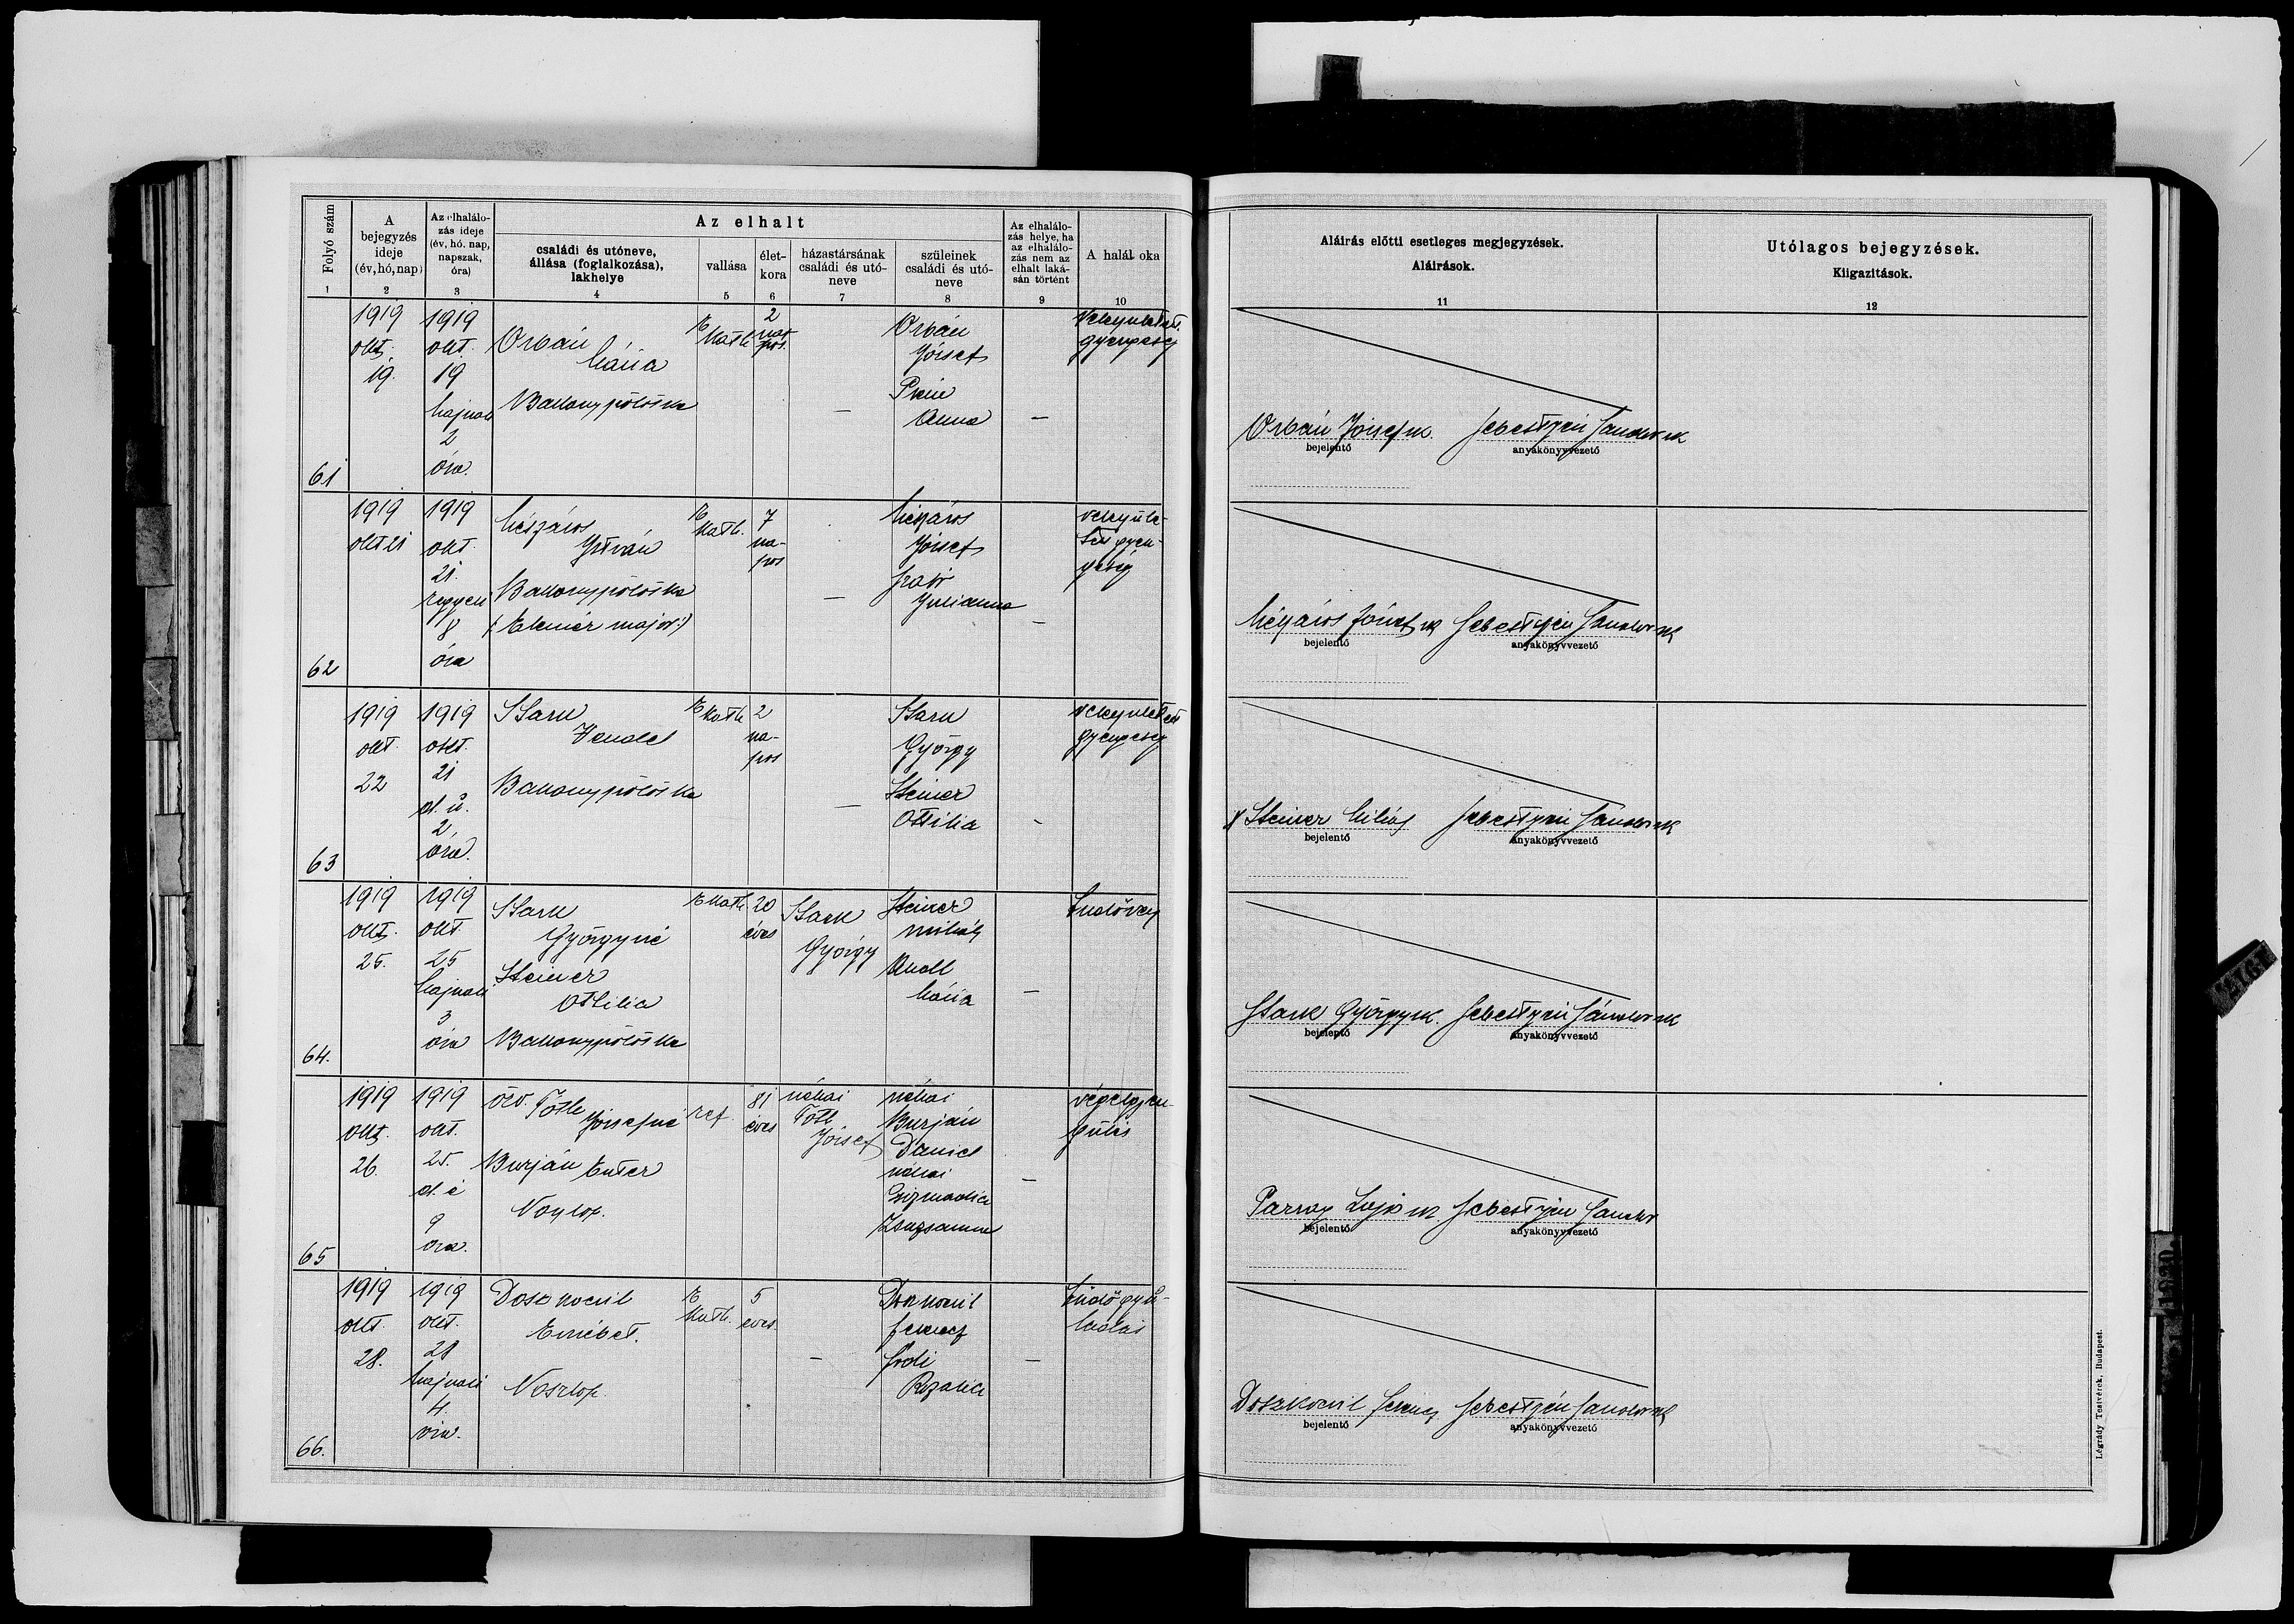 Folyó szám
1
A bejegyzés ideje (év, hó, nap)
2
Az elhalálozás ideje (év, hó. nap, napszak, óra)
3
Az elhalt
családi és utóneve, állása (foglalkozása), lakhelye
4
vallása
5
életkora
6
házastársának családi és utóneve
7
szüleinek családi és utóneve
8
Az elhalálozás helye, ha az elhalálozás nem az elhalt lakásán történt
9
A halál oka
10
Aláirás előtti esetleges megjegyzések.
Aláirások.
11
Utólagos bejegyzések.
Kiigazitások.
12
61
1919
okt.
19.
1919
okt.
19
hajnali
2
óra.
Orbán
Mária
Bakonypölöske
R
kath
2
nap
pos.
—
Orbán
József
Anna
—
Veleszületett
gyengeség
Orbán József sk.
bejelentő
Sebestyén Sándor sk
anyakönyvvezető
62
1919
okt 21
1919
okt.
21.
reggeli
8
óra
Mészáros
István
Bakonypölöske
(: Elemér major :)
R
kath.
7
na-
pos
—
Mészáros
József
Szabó
Julianna
—
veleszüle-
tett gyen-
geség
Mészáros József sk
bejelentő
Sebestyén Sándor sk
anyakönyvvezető
63
1919
okt.
22
1919
okt.
21
d. u.
2
óra.
Stark
Vendel
Bakonypölöske
R kath
2
na-
pos
—
Stark
György
Steiner
Ottilia
—
veleszületett
gyengeség
Steiner Mihály
bejelentő
Sebestyén Sándor sk
anyakönyvvezető
64.
1919
okt.
25.
1919
okt.
25
hajnali
3
óra
Stark
Györgyné
Steiner
Ottilia
Bakonypölöske
R kath
20
éves
Stark
György
Steiner
Mihály
Knoll
Mária
—
tüdővész
Stark György sk.
bejelentő
Sebestyén Sándor sk
anyakönyvvezető
65
1919
okt.
26.
1919
okt.
25.
d. e
9
óra.
özv. Tóth
Józsefné
Burján Eszter
Noszlop.
ref
81
éves
néhai
Tóth
József
néhai
Burján
Dániel
néhai
Csizmadia
Zsuzsanna
—
végelgyen-
gülés
bejelentő
Sebestyén Sándor
anyakönyvvezető
66.
1919
okt.
28.
1919
okt.
28
hajnali
4.
óra.
Doszkocsil
Erzsébet.
Noszlop.
R
kath.
5
éves.
—
Doszkocsil
Ferencz
Rozália
—
tüdőgyu-
ladás
Doszkocsil Ferencz
bejelentő
Sebestyén Sándor sk
anyakönyvvezető
Légrády Testvérek, Budapest.